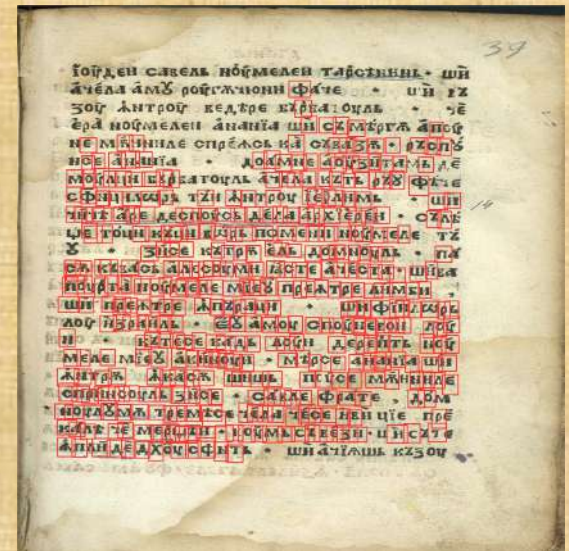 їоуден савель ноумелеи тарсѣнинь · ши
ачѣла амꙋ роугѫчюни фаче · ши въ
зоу ꙟнтроу ведѣре бърбатоуль · че
ера ноумелеи ананїа ши съ мѣргѫ апоу
не мѫниле спрежсь ка съ вазѫ · ръспꙋ
нсе ананїа · доамне аоузитамь де
моулци бърбатоуль ачела кѫть рѫꙋ фѣче
сфицилѡрь тъи ꙟнтроу їерлимь · ши
чичѣ аре деспоусь дела архїереи · сълѣ
це тоци кѫци вѡрь помени ноумеле тъ
ꙋ · зисе кътрѫ ель домноуль · па
сѫ къвась алесоуми ѩсте ачеста · шива
поурта ноумеле мїеꙋ преѫтре лимби
ши преѫтре ꙟпърации · шифїилѡрь
лоу їзраиль · еꙋ амоу споунерои лоу
и · кѫтесе кадь лоуи дерепть ноу
меле мїеꙋ акиноуи · мѣрсе ананїа ши
ꙟнтрѫ ꙟкасѫ шишь поусе мѫниле
спринсоуль зисе · савле фрате · дом
ноулꙋмѫ тремѣсе чела чесе иви цїе пре
кале че мерщеи · коумь съвези · ши съте
ꙟпли де дхоу сфнть · ши ачїѫшь къзоу
39
14